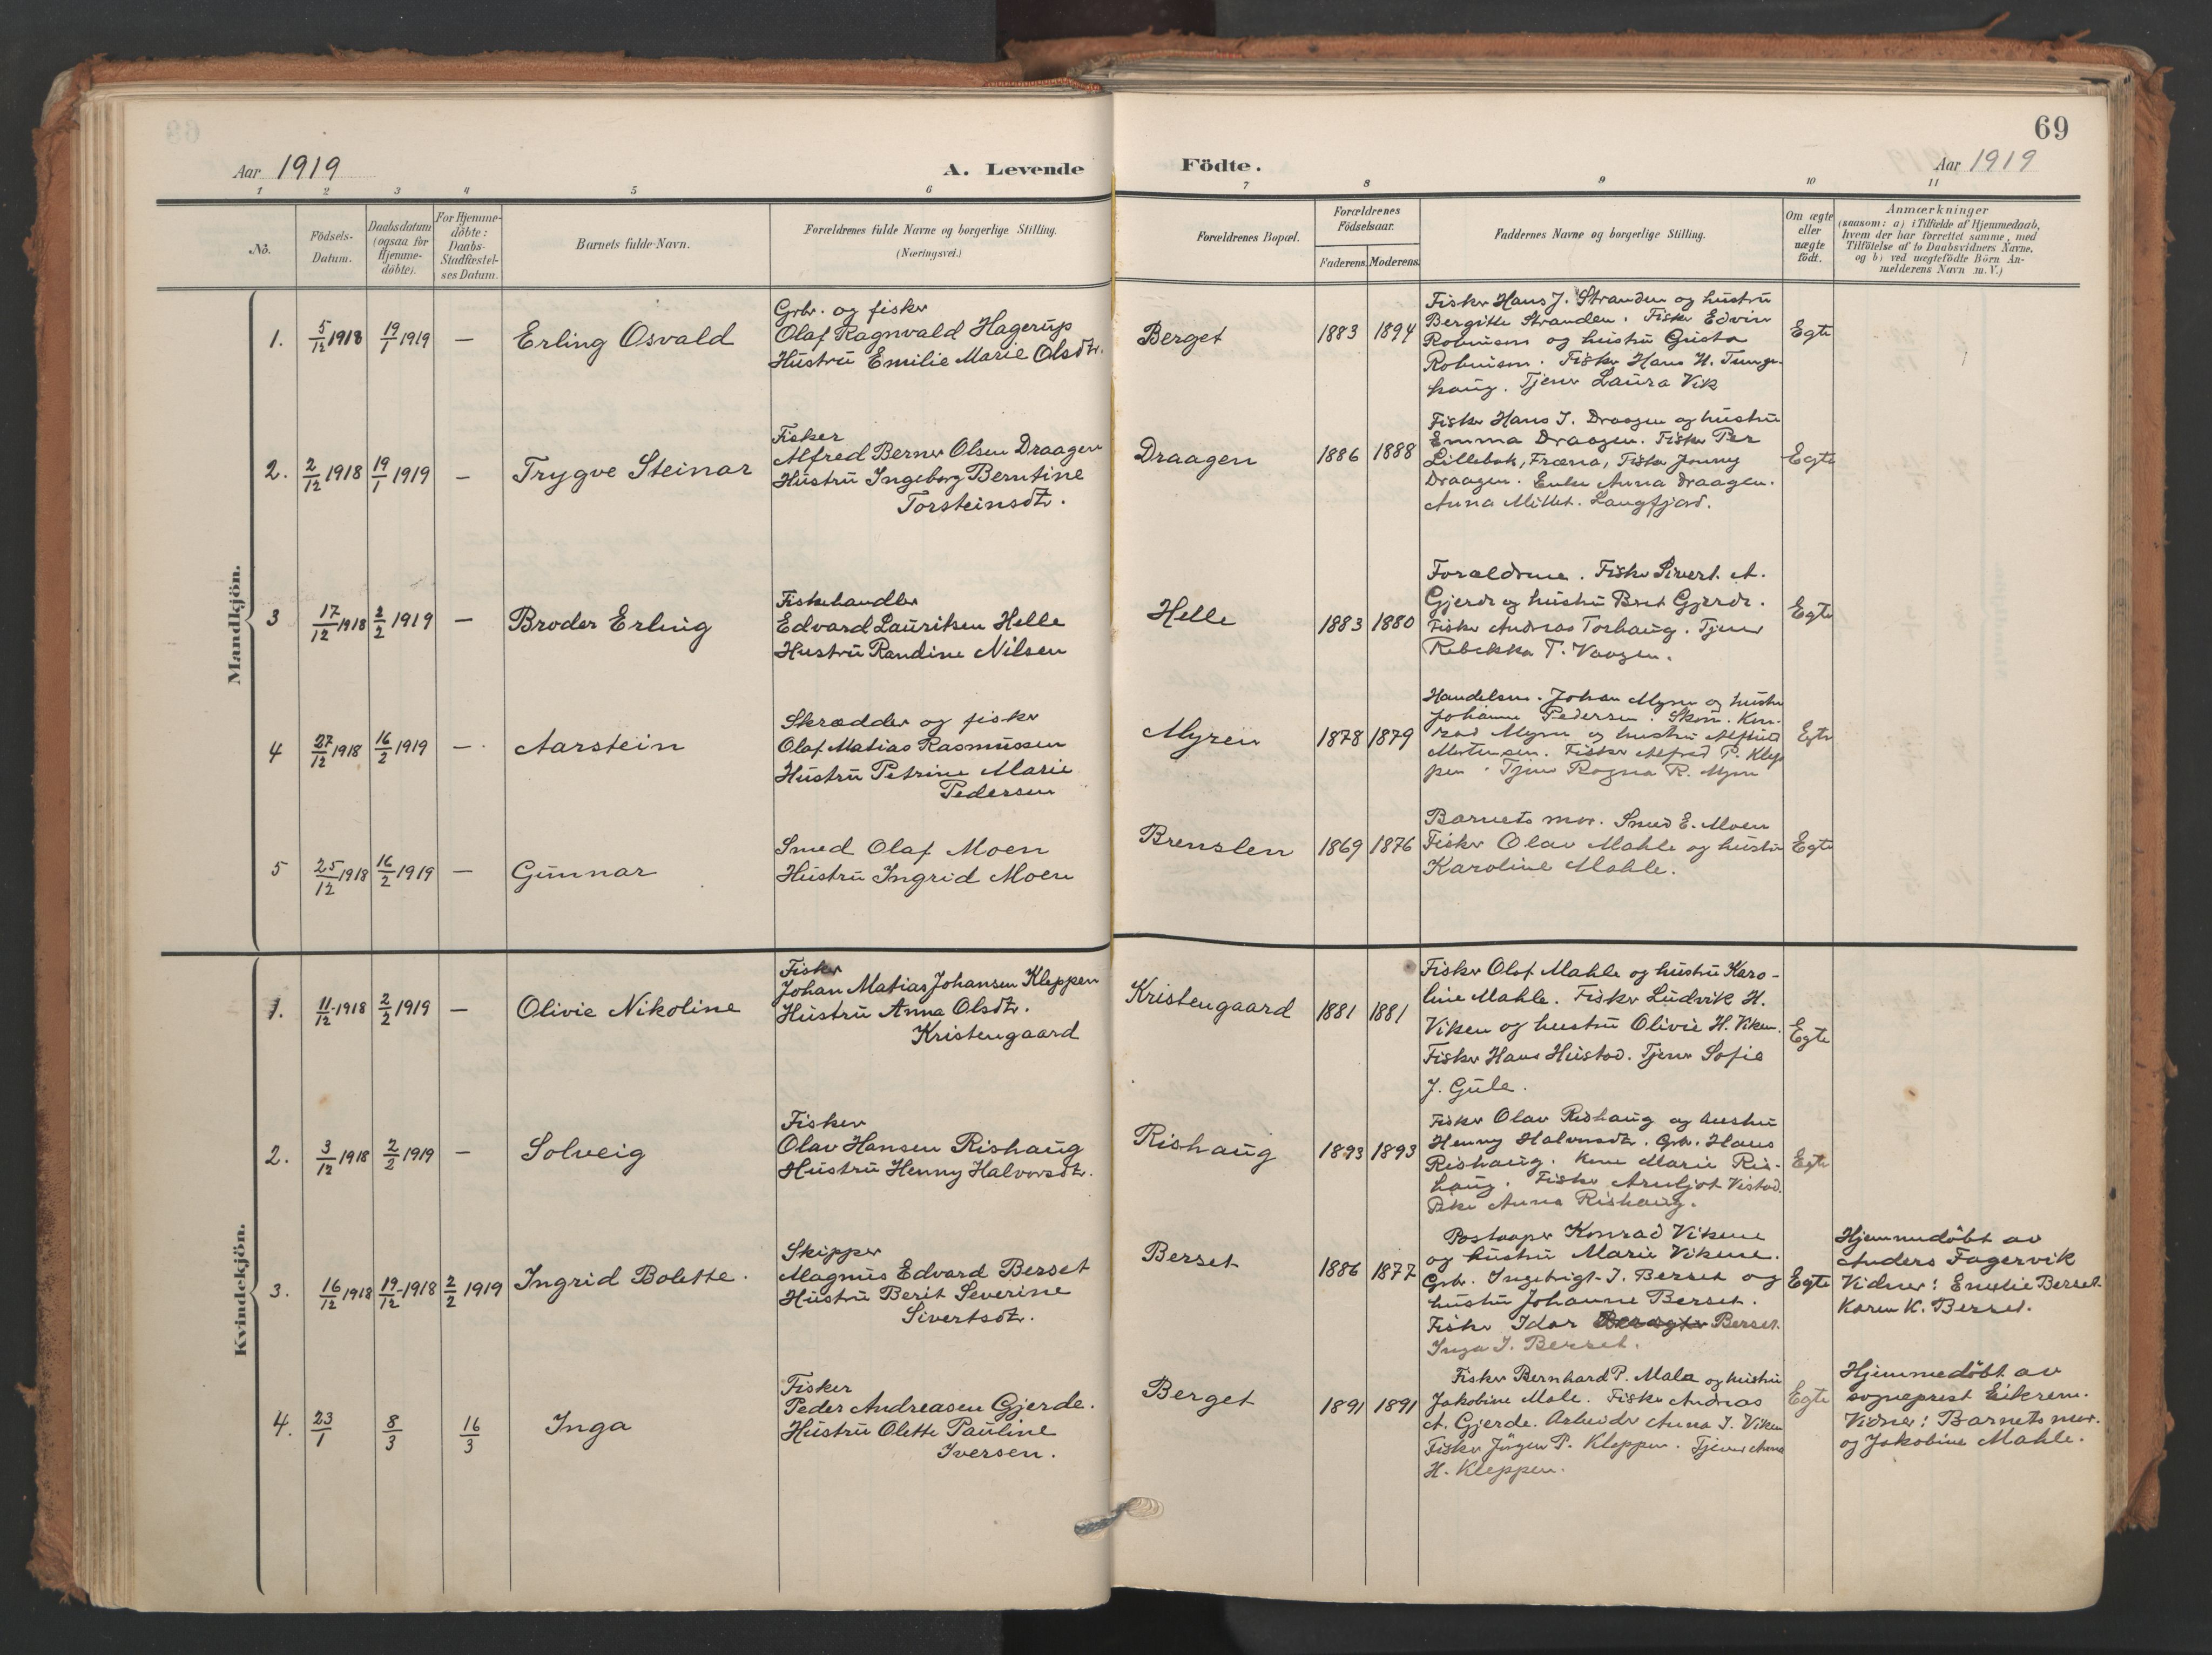 69
Aar 1919
A. Levende Födte.
Aar 1919
1 2 3 4 5 6 7 8 9 10 11
No.
Födsels-
Datum.
Daabsdatum
(ogsaa for
Hjemme-
döbte).
For Hjemme-
döbte:
Daabs-
Stadfæstel-
ses Datum.
Barnets fulde Navn.
Forældrenes fulde Navne og borgerlige Stilling.
(Næringsvei.)
Forældrenes Bopæl.
Forældrenes
Födselsaar.
Faderens. Moderens.
Faddernes Navne og borgerlige Stilling.
Om ægte
eller
uægte
födt.
Anmærkninger
(saasom: a) i Tilfælde af Hjemmedaab,
hvem der har forrettet samme, med
Tilföielse af to Daabsvidners Navne,
og b) ved uægtefödte Börn An-
melderens Navn m. V.)
Mandkjön.
1. 5/12 1918 19/1 1919 — Erling Osvald
Grbr. og fisker
Olaf Ragnvald Hagerup
Hustru Emilie Marie Olsdtr.
Berget 1883 1894
Fisker Hans J. Stranden og hustru
Bergitte Stranden. Fisker Edvin
Robinson og hustru Gusta
Robinson. Fisker Hans H. Tunge-
haug. Tjener Laura Vik
Egte
2. 2/12 1918 19/1 1919 — Trygve Steinar
Fisker
Alfred Berner Olsen Draagen
Hustru Ingeborg Berntine
Torsteinsdtr.
Draagen 1886 1888
Fisker Hans J. Draagen og hustru
Emma Draagen. Fisker Per
Lillebok, Fræna, Fisker Jonny
Draagen. Enke Anna Draagen.
Anna Mittet. Langfjord.
Egte
3 17/12 1918 2/2 1919 — Broder Erling
Fiskehandler
Edvard Lauritsen Helle
Hustru Randine Nilsen
Helle 1883 1880
Forældrene. Fisker Sivert A.
Gjerde og hustru Beret Gjerde.
Fisker Andreas Torhaug. Tjener
Rebekka T. Vaagen.
Egte
4 27/12 1918 16/2 1919 — Aarstein
Skrædder og fisker
Olaf Matias Rasmussen
Hustru Petrine Marie
Pedersen
Myren 1878 1879
Handelsm. Johan Myren og hustru
Johanne Pedersen. Skom. Kon-
rad Myren og hustru
Mortensen. Fisker Alfred P. Klep
pen. Tjener Ragna R. Myren
Egte
5 25/12 1918 16/2 1919 — Gunnar
Smed Olaf Moen
Hustru Ingrid Moen
Brenslen 1869 1876
Barnets mor. Smed E. Moen
Fisker Olav Mahle og hustru
Karoline Mahle.
Egte
Kvindekjön.
1. 11/12 1918 2/2 1919 — Olivie Nikoline
Fisker
Johan Matias Johansen Kleppen
Hustru Anna Olsdtr.
Kristengaard
Kristengaard 1881 1881
Fisker Olaf Mahle og hustru Karo-
line Mahle. Fisker Ludvik H.
Viken og hustru Olivie H. Viken.
Fisker Hans Hustad. Tjener Sofie
J. Gule.
Egte
2. 3/12 1918 2/2 1919 — Solveig
Fisker
Olav Hansen Rishaug
Hustru Henny Halvorsdtr.
Rishaug 1893 1893
Fisker Olav Rishaug og hustru
Henny Halvorsdtr. Grbr. Hans
Rishaug. Kone Marie Ris-
haug. Fisker Arnljot Vestad.
Pike Anna Rishaug.
Egte
3. 16/12 1918 19/12 1918 2/2 1919 Ingrid Bolette.
Skipper
Magnus Edvard Berset
Hustru Berit Severine
Sivertsdtr.
Berset 1886 1877
Postaapner Konrad Vikene
og hustru Marie Vikene.
Grbr. Ingebrigt J. Berset og
hustru Johanne Berset.
Fisker Idar Berset.
Inga J. Berset.
Egte
Hjemmedöbt av
Anders Fagervik
Vidner: Emelie Berset
Karen K. Berset.
4. 23/1 8/3 16/3 Inga
Fisker
Peder Andreasen Gjerde.
Hustru Olette Pauline
Iversen.
Berget 1891 1891
Fisker Bernhard P. Male og hustru
Jakobine Male. Fisker Andreas
A. Gjerde. Arbeider Anna J. Viken
Fisker Jörgen P. Kleppen. Tjener Anna
H. Kleppen.
Egte
Hjemmedöbt av
sogneprest Eikrem.
Vidner: Barnets mor.
og Jakobine Mahle.